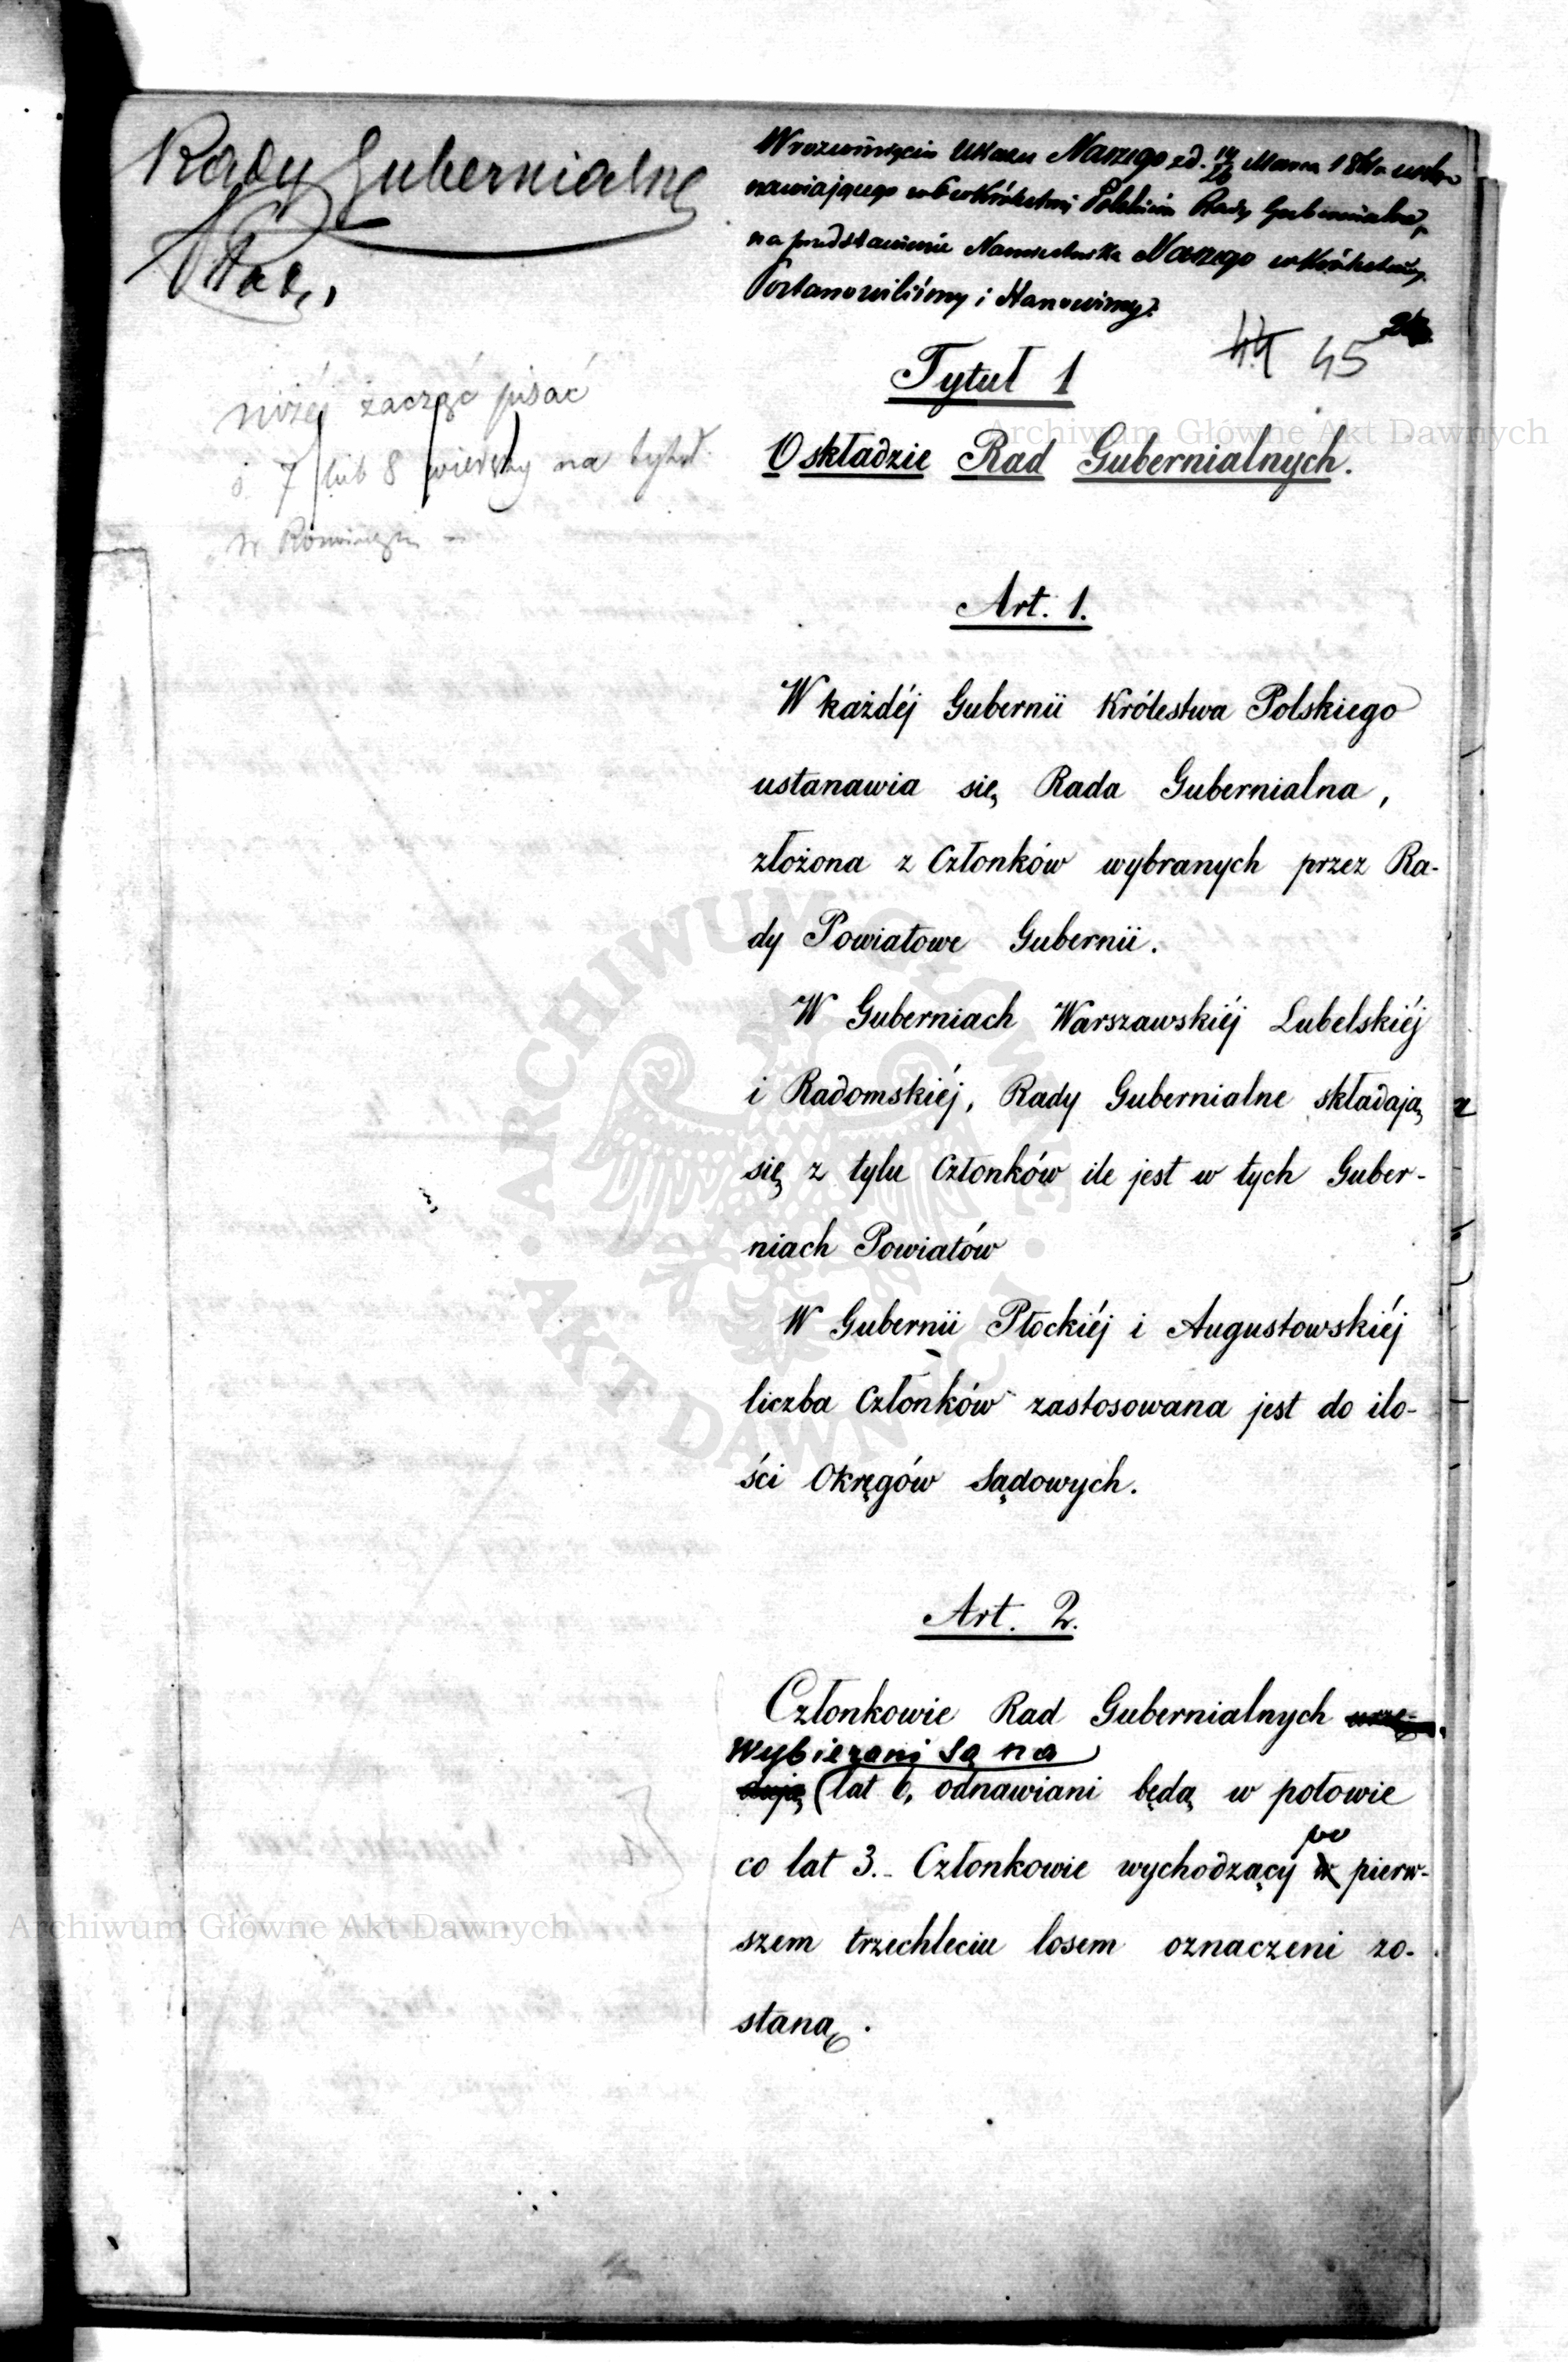 Rady Gubernialne
W rozwinięciu Ukazu Naszego z d. 14/26 Marca 1861 r. usta-
nawiającego w Królestwie Polskim Rady Gubernialne,
na przedstawienie Namiestnika Naszego w Królestwie,
Postanowiliśmy i Stanowimy:
44 45
Tytuł 1
O składzie Rad Gubernialnych.
niżéj zacząć pisać
7 lub 8 wierszy na tytuł
Art. 1.
W każdéj Gubernii Królestwa Polskiego
ustanawia się Rada Gubernialna,
złożona z Członków wybranych przez Ra-
dy Powiatowe Gubernii.
W Guberniach Warszawskiéj Lubelskiéj
i Radomskiéj, Rady Gubernialne składają
się z tylu Członków ile jest w tych Guber-
niach Powiatów
W Gubernii Płockiéj i Augustowskiéj
liczba Członków zastosowana jest do ilo-
ści Okręgów Sądowych.
Art. 2.
Członkowie Rad Gubernialnych
Wybierani są na
lat 6, odnawiani będą w połowie
po
co lat 3. Członkowie wychodzący w pierw-
szem trzechleciu losem oznaczeni zo-
staną.
Archiwum Główne Akt Dawnych
ARCHIWUM GŁÓWNE
AKT DAWNYCH
Archiwum Główne Akt Dawnych